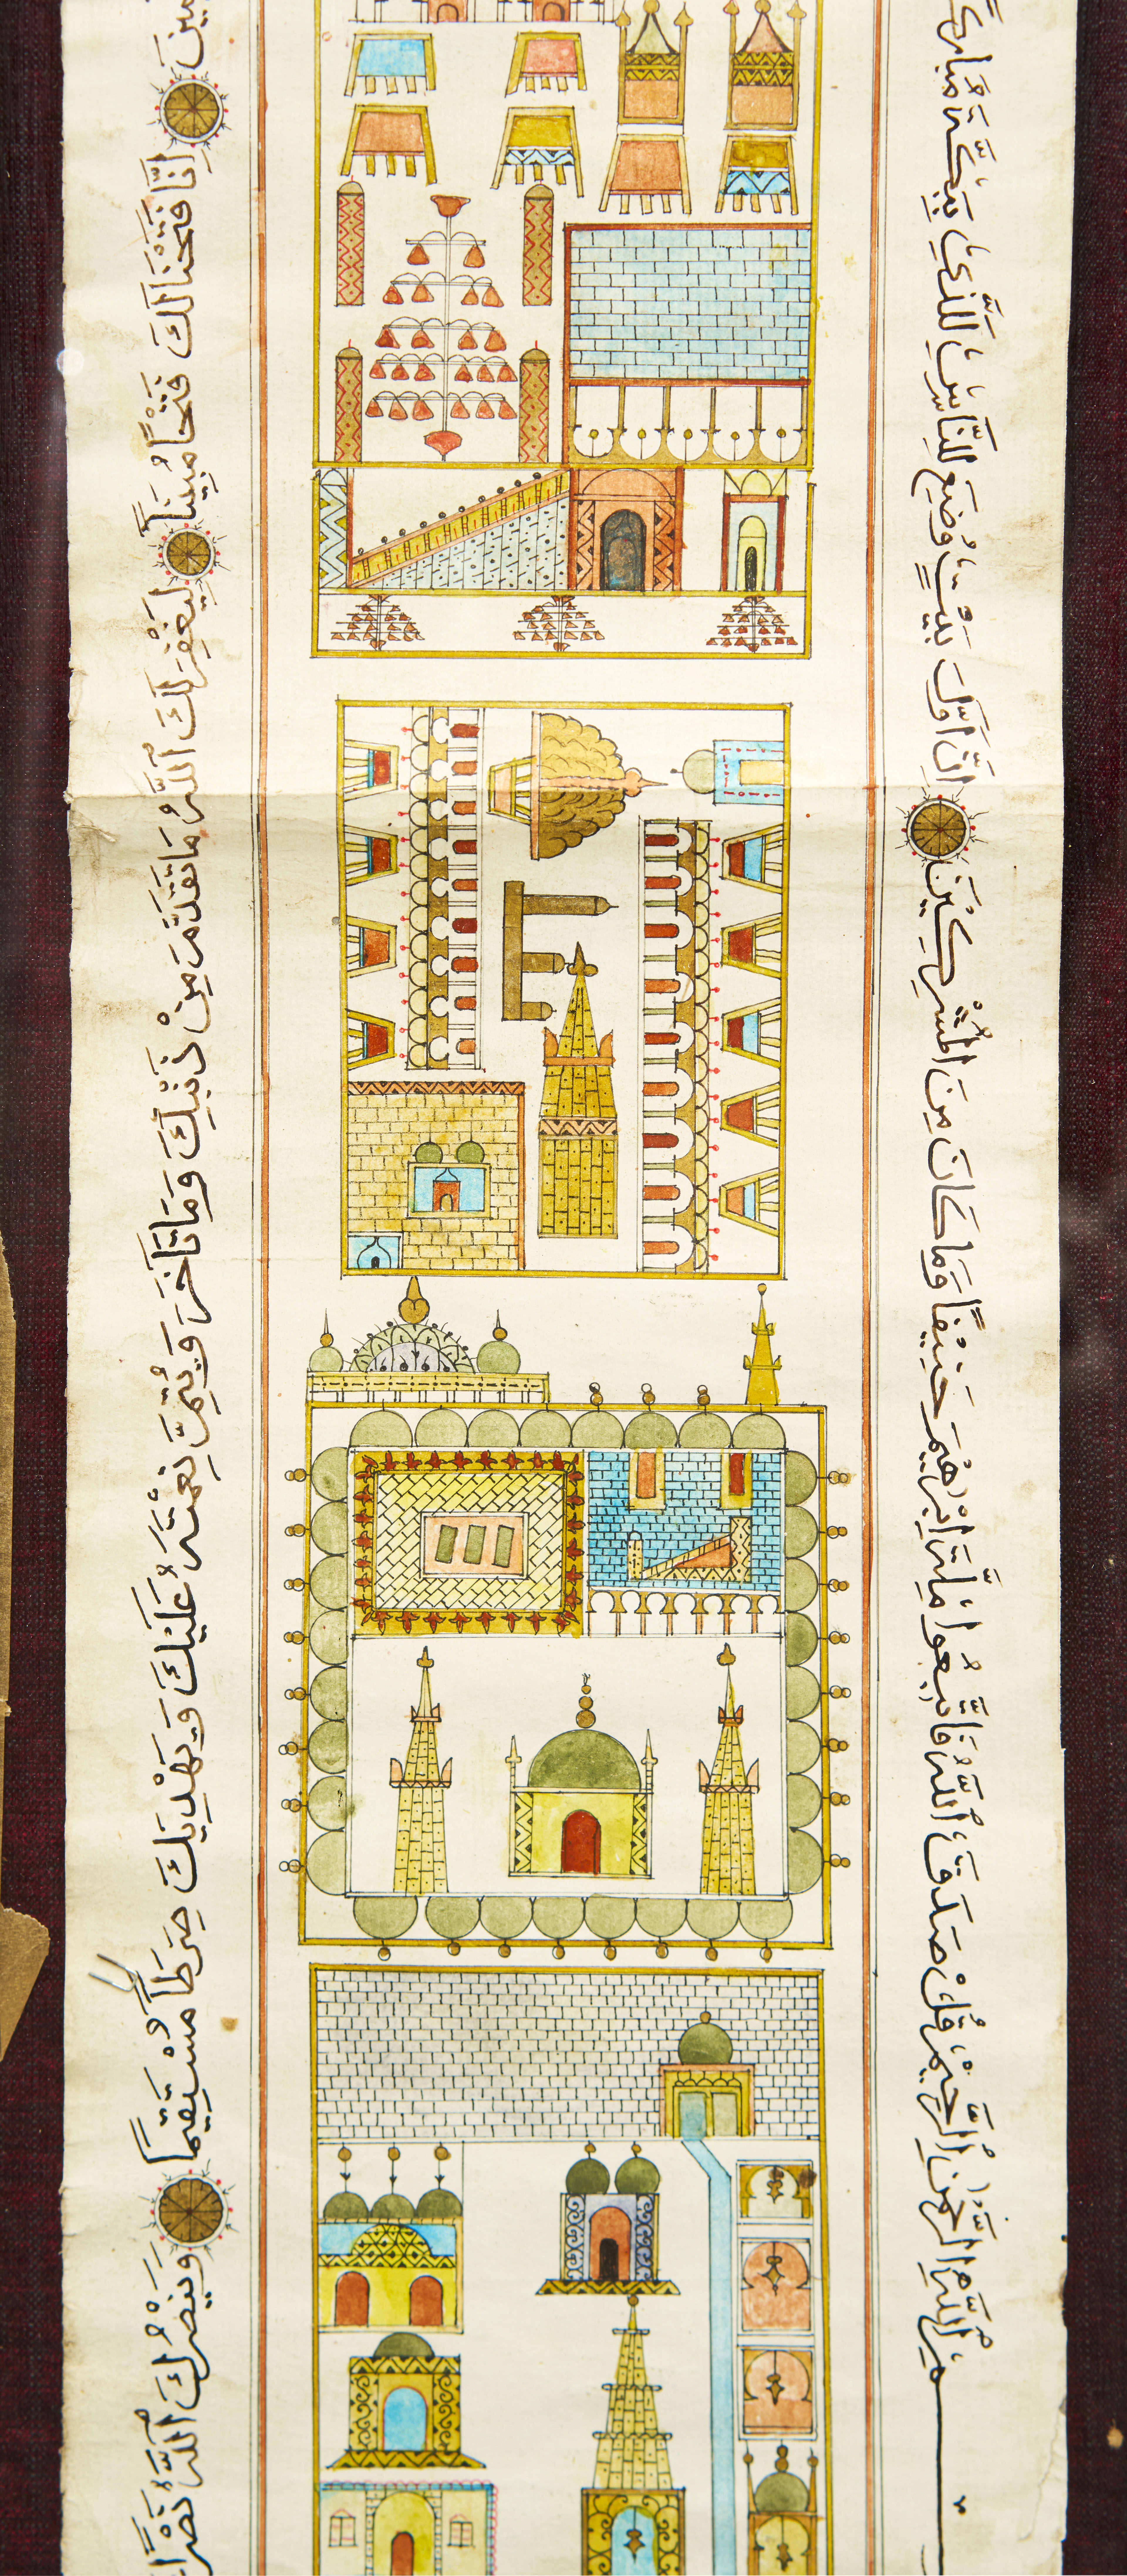 بِسْمِ ٱللَّهِ ٱلرَّحْمٰنِ ٱلرَّحِيمِ قُلْ صَدَقَ ٱللَّهُ فَاتَّبِعُوا مِلَّةَ اِبْرٰهِيمَ حَنِيفًا وَمَا كَانَ مِنَ الْمُشْرِكِينَ اِنَّ اَوَّلَ بَيْتٍ وُضِعَ لِلنَّاسِ لَلَّذِي بِبَكَّةَ مُبَارَكًا
اِنَّا فَتَحْنَا لَكَ فَتْحًا مُبِينًا لِيَغْفِرَ لَكَ ٱللَّهُ مَا تَقَدَّمَ مِنْ ذَنْبِكَ وَمَا تَاَخَّرَ وَيُتِمَّ نِعْمَتَهُ عَلَيْكَ وَيَهْدِيَكَ صِرَاطًا مُسْتَقِيمًا وَيَنْصُرَكَ ٱللَّهُ نَصْرًا